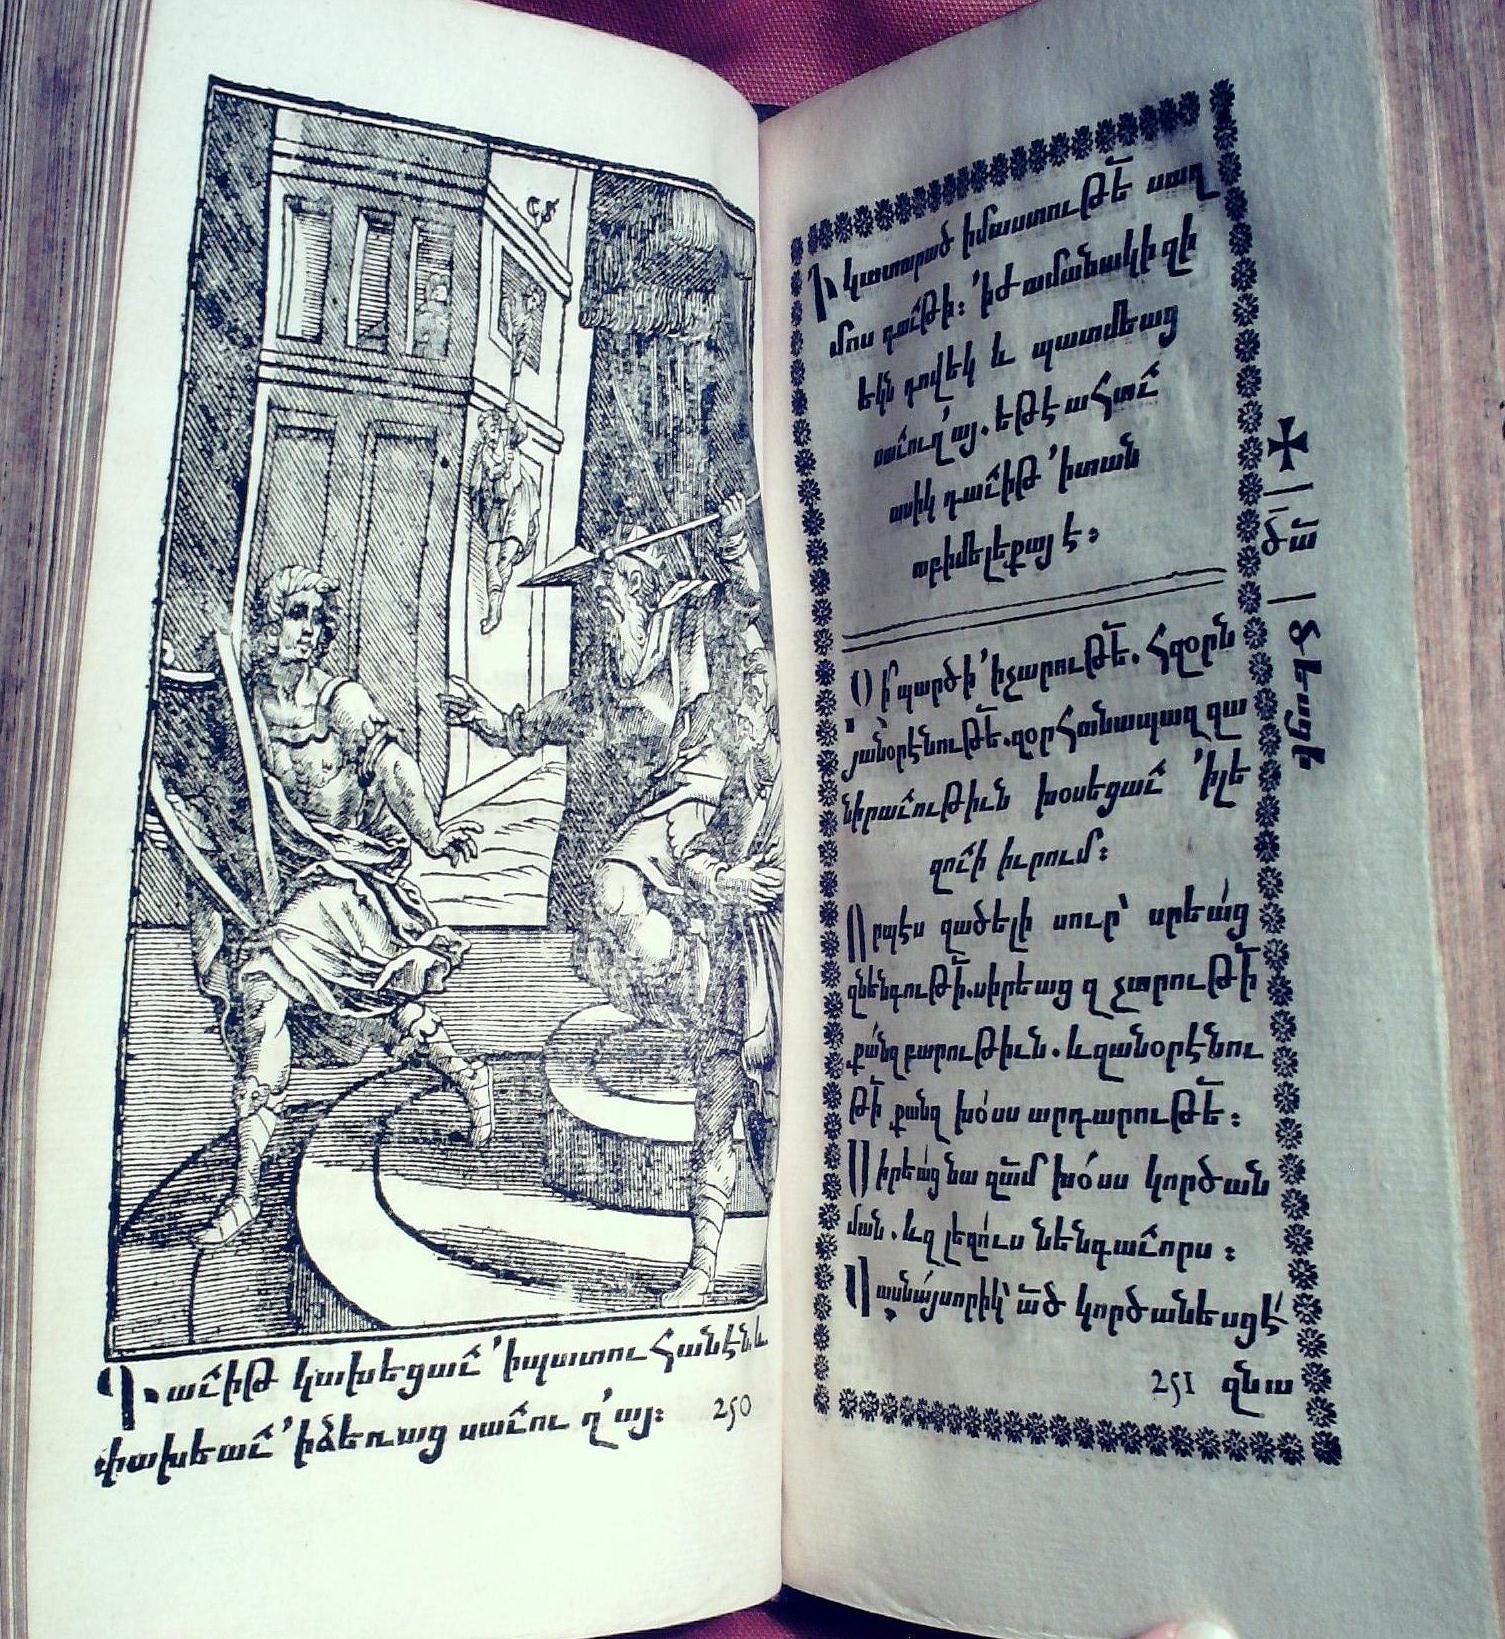 Դաւիթ կախեցաւ ՚իպատուհանէն և
փախեաւ ՚իձեռաց սաւուղ՚այ։ 250
Ի կատարած իմաստութե՟ սաղ
մոս դաւթի։ ՚իժամանակի զի
եկն դովեկ և պատմեաց
սաւուղ՚այ. եթէ ահաւ՟
ասիկ դաւիթ ՚իտան
աբիմելեքայ է։
Զի՞ պարծի ՚իչարութե՟. հզօրն
յանօրէնութե՟. զօրհանապազ զա
նիրաւութիւն խօսեցաւ ՚իլե
զուի իւրում։
Որպէս զածելի սուր՝ սրեա՛ց
զնենգութի՟. սիրեաց զչարութի՟
քա՛նզ բարութիւն. և զանօրէնու
թի՟ քանզ խօ՛սս արդարութե՟։
Սիրեա՛ց նա զա՟մ խօ՛սս կործան
ման. և զ լեզո՛ւս նենգաւորս։
Վասնա՛յսորիկ՝ ա՟ծ կործանեսցէ՛
251 զնա
ծա
Տեացե՟